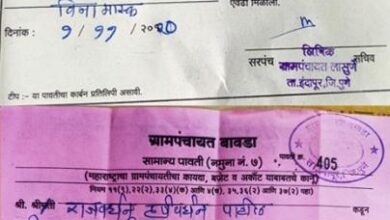 विना मास्क
एवढी मिळाली.
दिनांक : ९/११/२०२०
सरपंच सचिव
लिपिक
ग्रामपंचायत लासुर्णे
ता.इंदापूर,जि.पुणे
टीप :- या पावतीचा कार्बन प्रतिलिपी असावी.
ग्रामपंचायत बावडा
सामान्य पावती (नमुना नं. ७) पावती क्र. 405
(महाराष्ट्राचा ग्रामपंचायतीचा कायदा, बजेट व अकौंट याबाबतचे कानू)
नियम ११(१),२२(२),३३(४)(क) आणि ४(ब), ३५,३६(२) आणि ३७(२) पहा)
श्री. श्रीमती राजवर्धन हर्षवर्धन पाटील
कडून